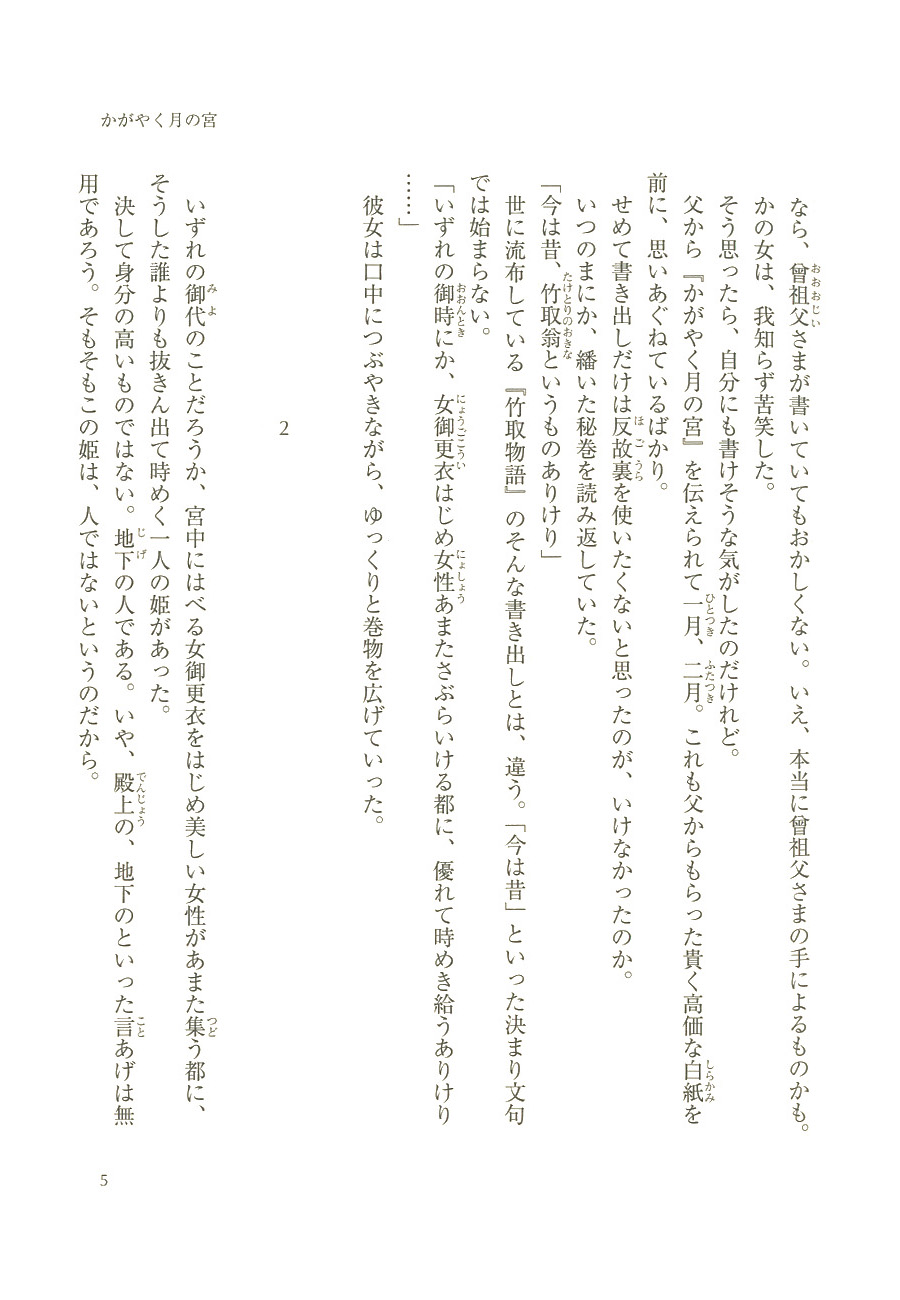 かがやく月の宮
なら、曾祖父さまが書いていてもおかしくない。いえ、本当に曾祖父さまの手によるものかも。
かの女は、我知らず苦笑した。
そう思ったら、自分にも書けそうな気がしたのだけれど。
父から『かがやく月の宮』を伝えられて一月、二月。これも父からもらった貴く高価な白紙を
前に、思いあぐねているばかり。
せめて書き出しだけは反故裏を使いたくないと思ったのが、いけなかったのか。
いつのまにか、繙いた秘巻を読み返していた。
「今は昔、竹取翁というものありけり」
世に流布している『竹取物語』のそんな書き出しとは、違う。「今は昔」といった決まり文句
では始まらない。
「いずれの御時にか、女御更衣はじめ女性あまたさぶらいける都に、優れて時めき給うありけり
……」
彼女は口中につぶやきながら、ゆっくりと巻物を広げていった。
2
いずれの御代のことだろうか、宮中にはべる女御更衣をはじめ美しい女性があまた集う都に、
そうした誰よりも抜きん出て時めく一人の姫があった。
決して身分の高いものではない。地下の人である。いや、殿上の、地下のといった言あげは無
用であろう。そもそもこの姫は、人ではないというのだから。
5